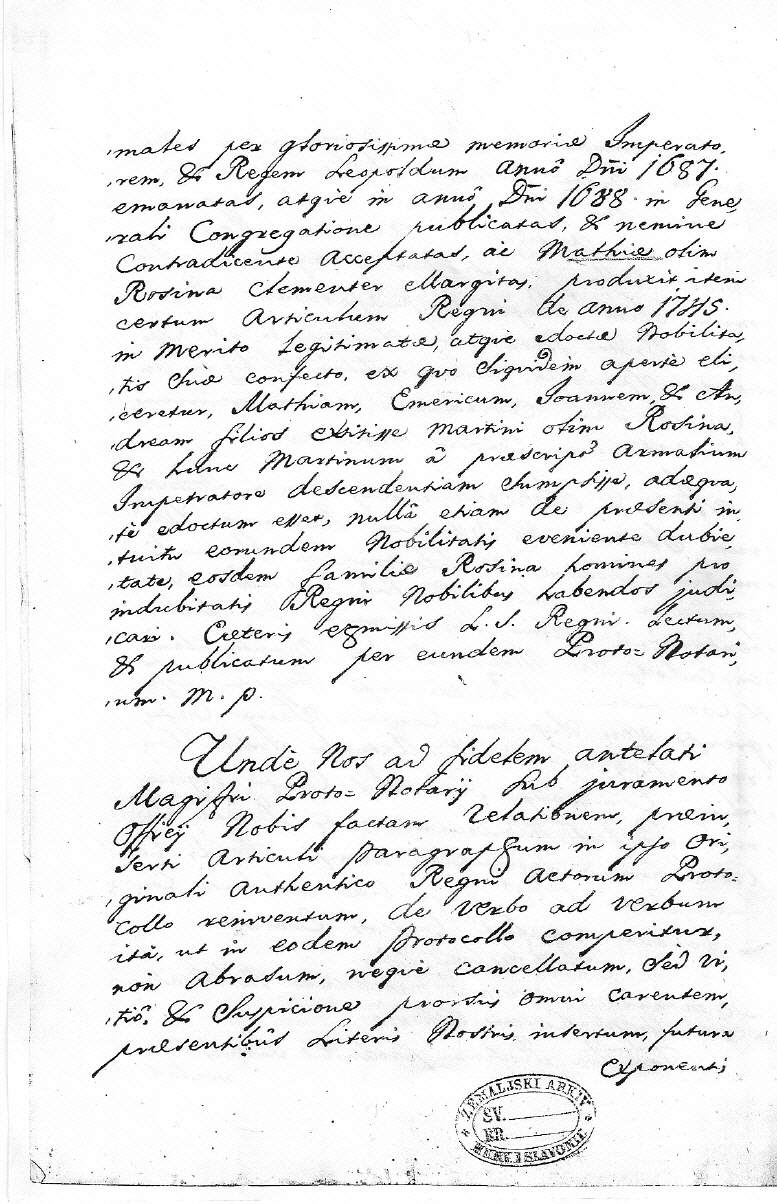 males per gloriosissimæ memoriæ Imperato,
,rem, & Regem Leopoldum annô Dñi 1687.
emanatas, atqúe in annô Dñi 1688. in Gene,
,rali Congregatione publicatas, & nemine
Contradicente Acceptatas, ac Mathiæ olim
Rosina Clementer Margitas. produxit item
certum Articulum Regni de anno 1745.
in merito Legitimatæ, atqúe edoctæ Nobilita,
,tis suæ confecto, ex quo siquidem apertè eli,
,ceretur, Mathiam, Emericum, Joannem, & An,
,dream filios extitisse Martini olim Rosina,
& hunc Martinum â præscripto Armalium
Impetratore descendentiam sumpsisse, adæqua,
,tè edoctum esset, nullâ etiam de præsenti in,
,tuitu eorundem Nobilitatis eveniente dubie,
,tate, eosdem familiæ Rosina homines pro
indubitatis Regni Nobilibus habendos judi,
,cari. Cæteris L. S. Regni. Lectum,
& publicatum per eundem Proto= Notari,
,um. m. p.
Undè Nos ad fidelem antelati
Magistri Proto= Notarij sub juramento
Officij Nobis factam relationem, præin,
serti Articuli Paragraphum in ipso Ori,
,ginali authentico Regni Actorum Proto=
collo reinventum, de verbo ad verbum
ità, ut in eodem Protocollo comperitur,
non Abrasum, neqúe cancellatum, sed vi,
,tiô, & suspicione prorsùs omni carentem,
præsentibûs Literis Nostris insertum, futura
Exponentis
ZEMALJSKI ARKIV
SV.
BR.
HRV. I SLAVONIJE